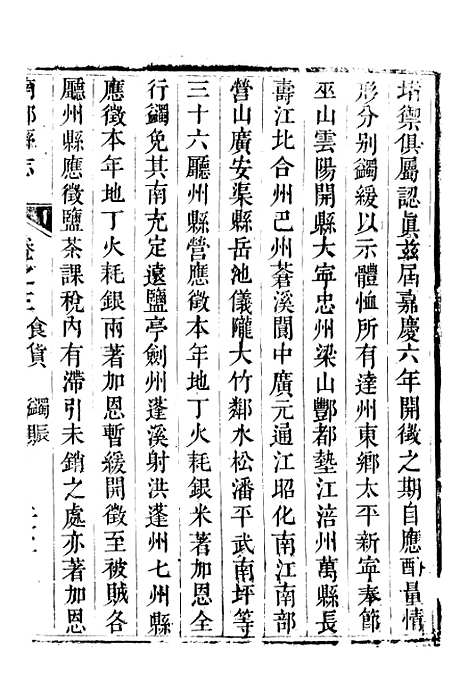 堵禦俱屬認眞茲屆嘉慶六年開徵之期自應酌量情
形分别蠲緩以示體恤所有達州東鄉太平新寜奉節
巫山雲陽開縣大寜忠州梁山酆都墊江涪州萬縣長
壽江北合州巴州蒼溪閬中廣元通江昭化南江南部
營山廣安渠縣岳池儀隴大竹鄰水松潘平武南坪等
三十六廳州縣營應徵本年地丁火耗銀米著加恩全
行蠲免其南充定遠鹽亭劍州蓬溪射洪蓬州七州縣
應徵本年地丁火耗銀兩著加恩暫緩開徵至被賊各
廳州縣應徵鹽茶課稅內有滯引未銷之處亦著加恩
南部縣志 卷之三食貨 蠲賑